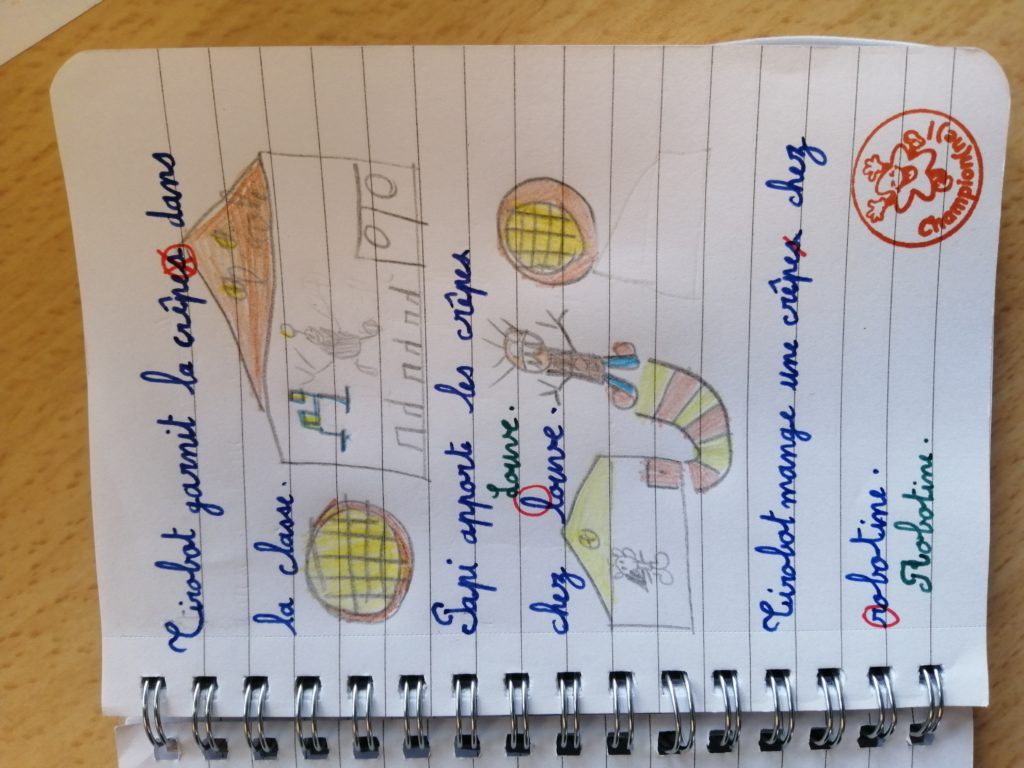 Tirobot garnit la crêpes dans
la classe.
école
Papi apporte les crêpes
Louve.
chez louve.
Tirobot mange une crêpes chez
robotine.
Robotine.
Champion(ne)